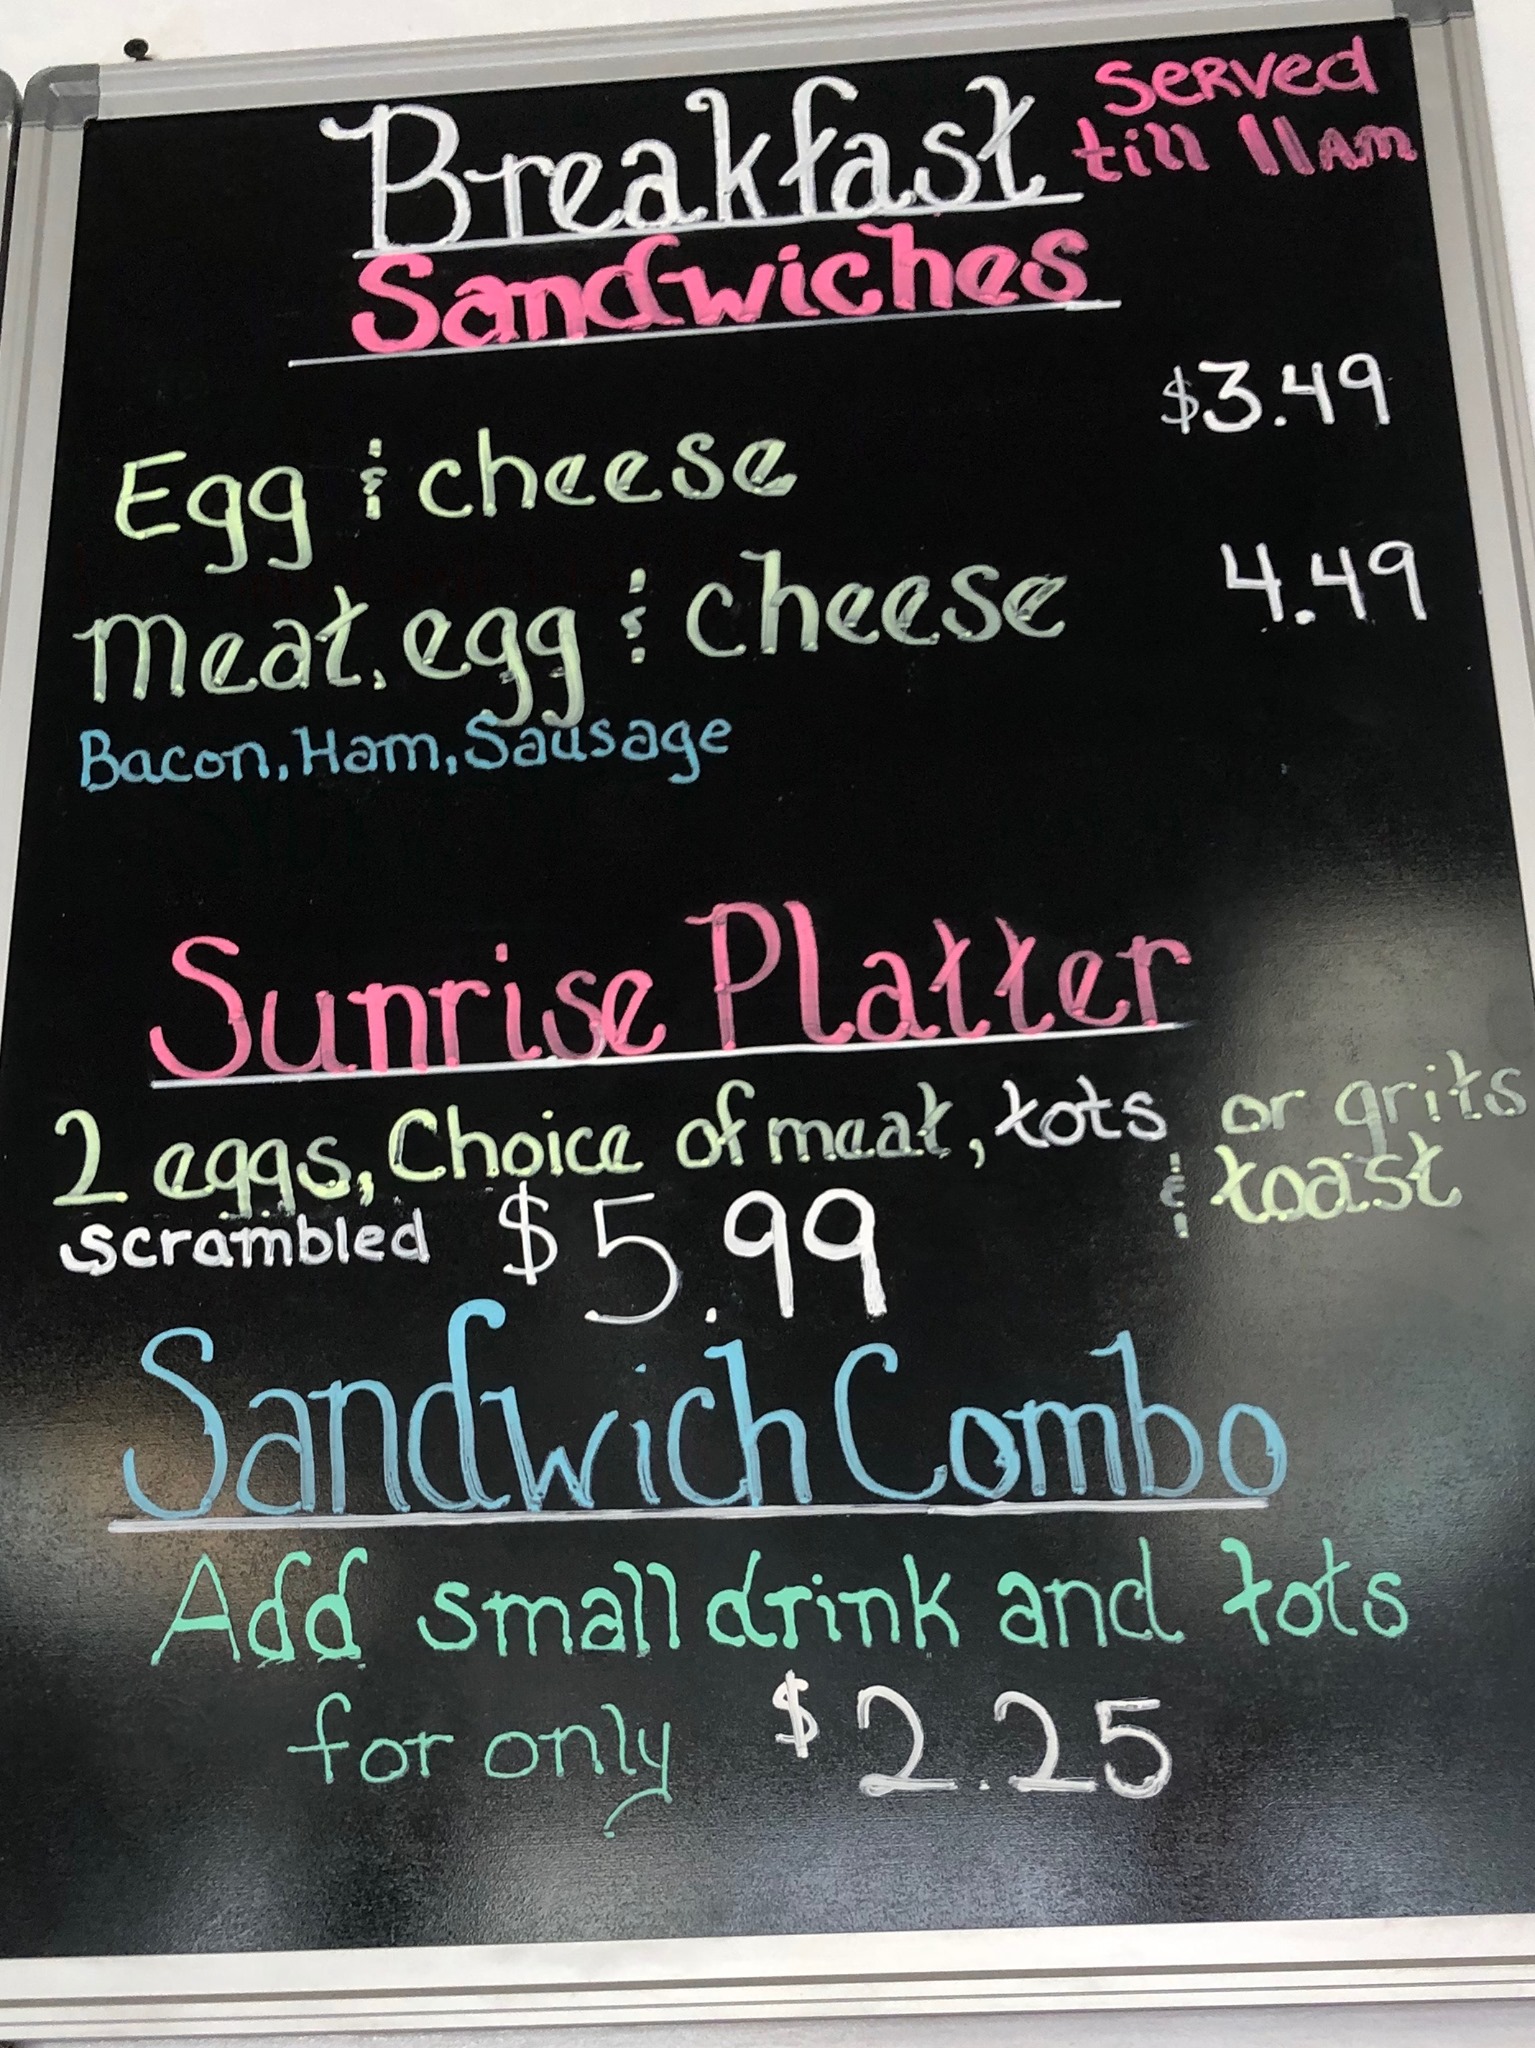 Breakfast Served
till 11 Am
Sandwiches
Egg & cheese $3.49
Meat, egg & cheese 4.49
Bacon, Ham, Sausage
Sunrise Platter
2 eggs, Choice of meat, tots or grits
& toast
scrambled $5.99
Sandwich Combo
Add small drink and tots
for only $2.25